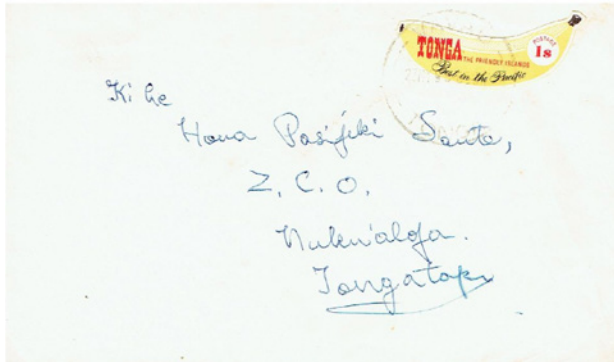 TONGA
THE FRIENDLY ISLANDS
Best in the Pacific
POSTAGE
1s
Ki he
Houa Pasifiki Sauta,
Z. C. O.
Nuku'alofa.
Tongatapu